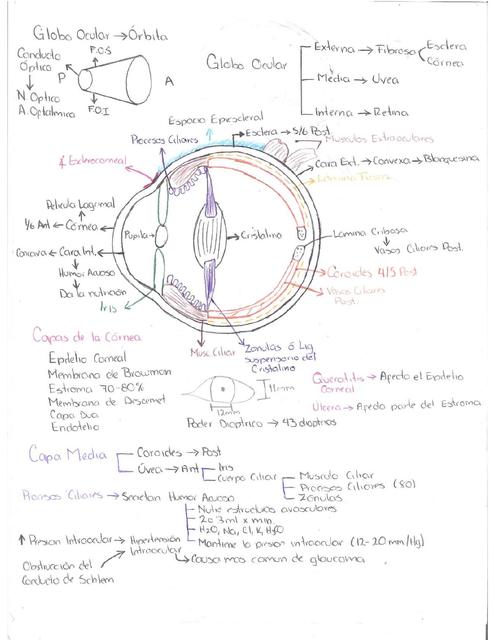 Globo Ocular → Órbita
Conducto Óptico
F.O.S
P
A
N Óptico
A. Oftalmica
F.O.I
Globo Ocular
Externa → Fibrosa
Esclera
Córnea
Média → Uvea
Interna → Retina
Espacio Epiescleral
Procesos Ciliares
Esclera → 5/6 Post.
Musculos Extraoculares
∡ Esclerocorneal
Cara Ext. → Convexa → Blanquesina
Lamina Fusca
Pelicula Lagrimal
1/6 Ant ← Córnea
Pupila
Cristalino
Lamina Cribosa
Vasos Ciliares Post.
Concava ← Cara Int.
Humor Acuoso
Da la nutrición
Iris
Coroides 4/5 Post
Vasos Ciliares Post.
Musc Ciliar
Zonulas ó Lig suspensorio del Cristalino
Capas de la Córnea
Epitelio Corneal
Membrana de Browman
Estroma 70-80%
Membrana de Descemet
Capa Dua
Endotelio
11mm
12mm
Poder Dioptrico → 43 dioptrias
Queratitis → Afecta el Epitelio Corneal
Ulcera → Afecta parte del Estroma
Capa Media
Coroides → Post
Úvea → Ant
Iris
Cuerpo Ciliar
Musculo Ciliar
Procesos Ciliares (80)
Zonulas
Procesos Ciliares → Secretan Humor Acuoso
Nutre estructuras avasculares
2 a 3 ml x min.
H2O, Na, Cl, K, H2O
Mantiene la presion intraocular (12-20 mm/Hg)
↑ Presion Intraocular → Hipertensión Intraocular
Causa mas comun de glaucoma
Obstrucción del Conducto de Schlem